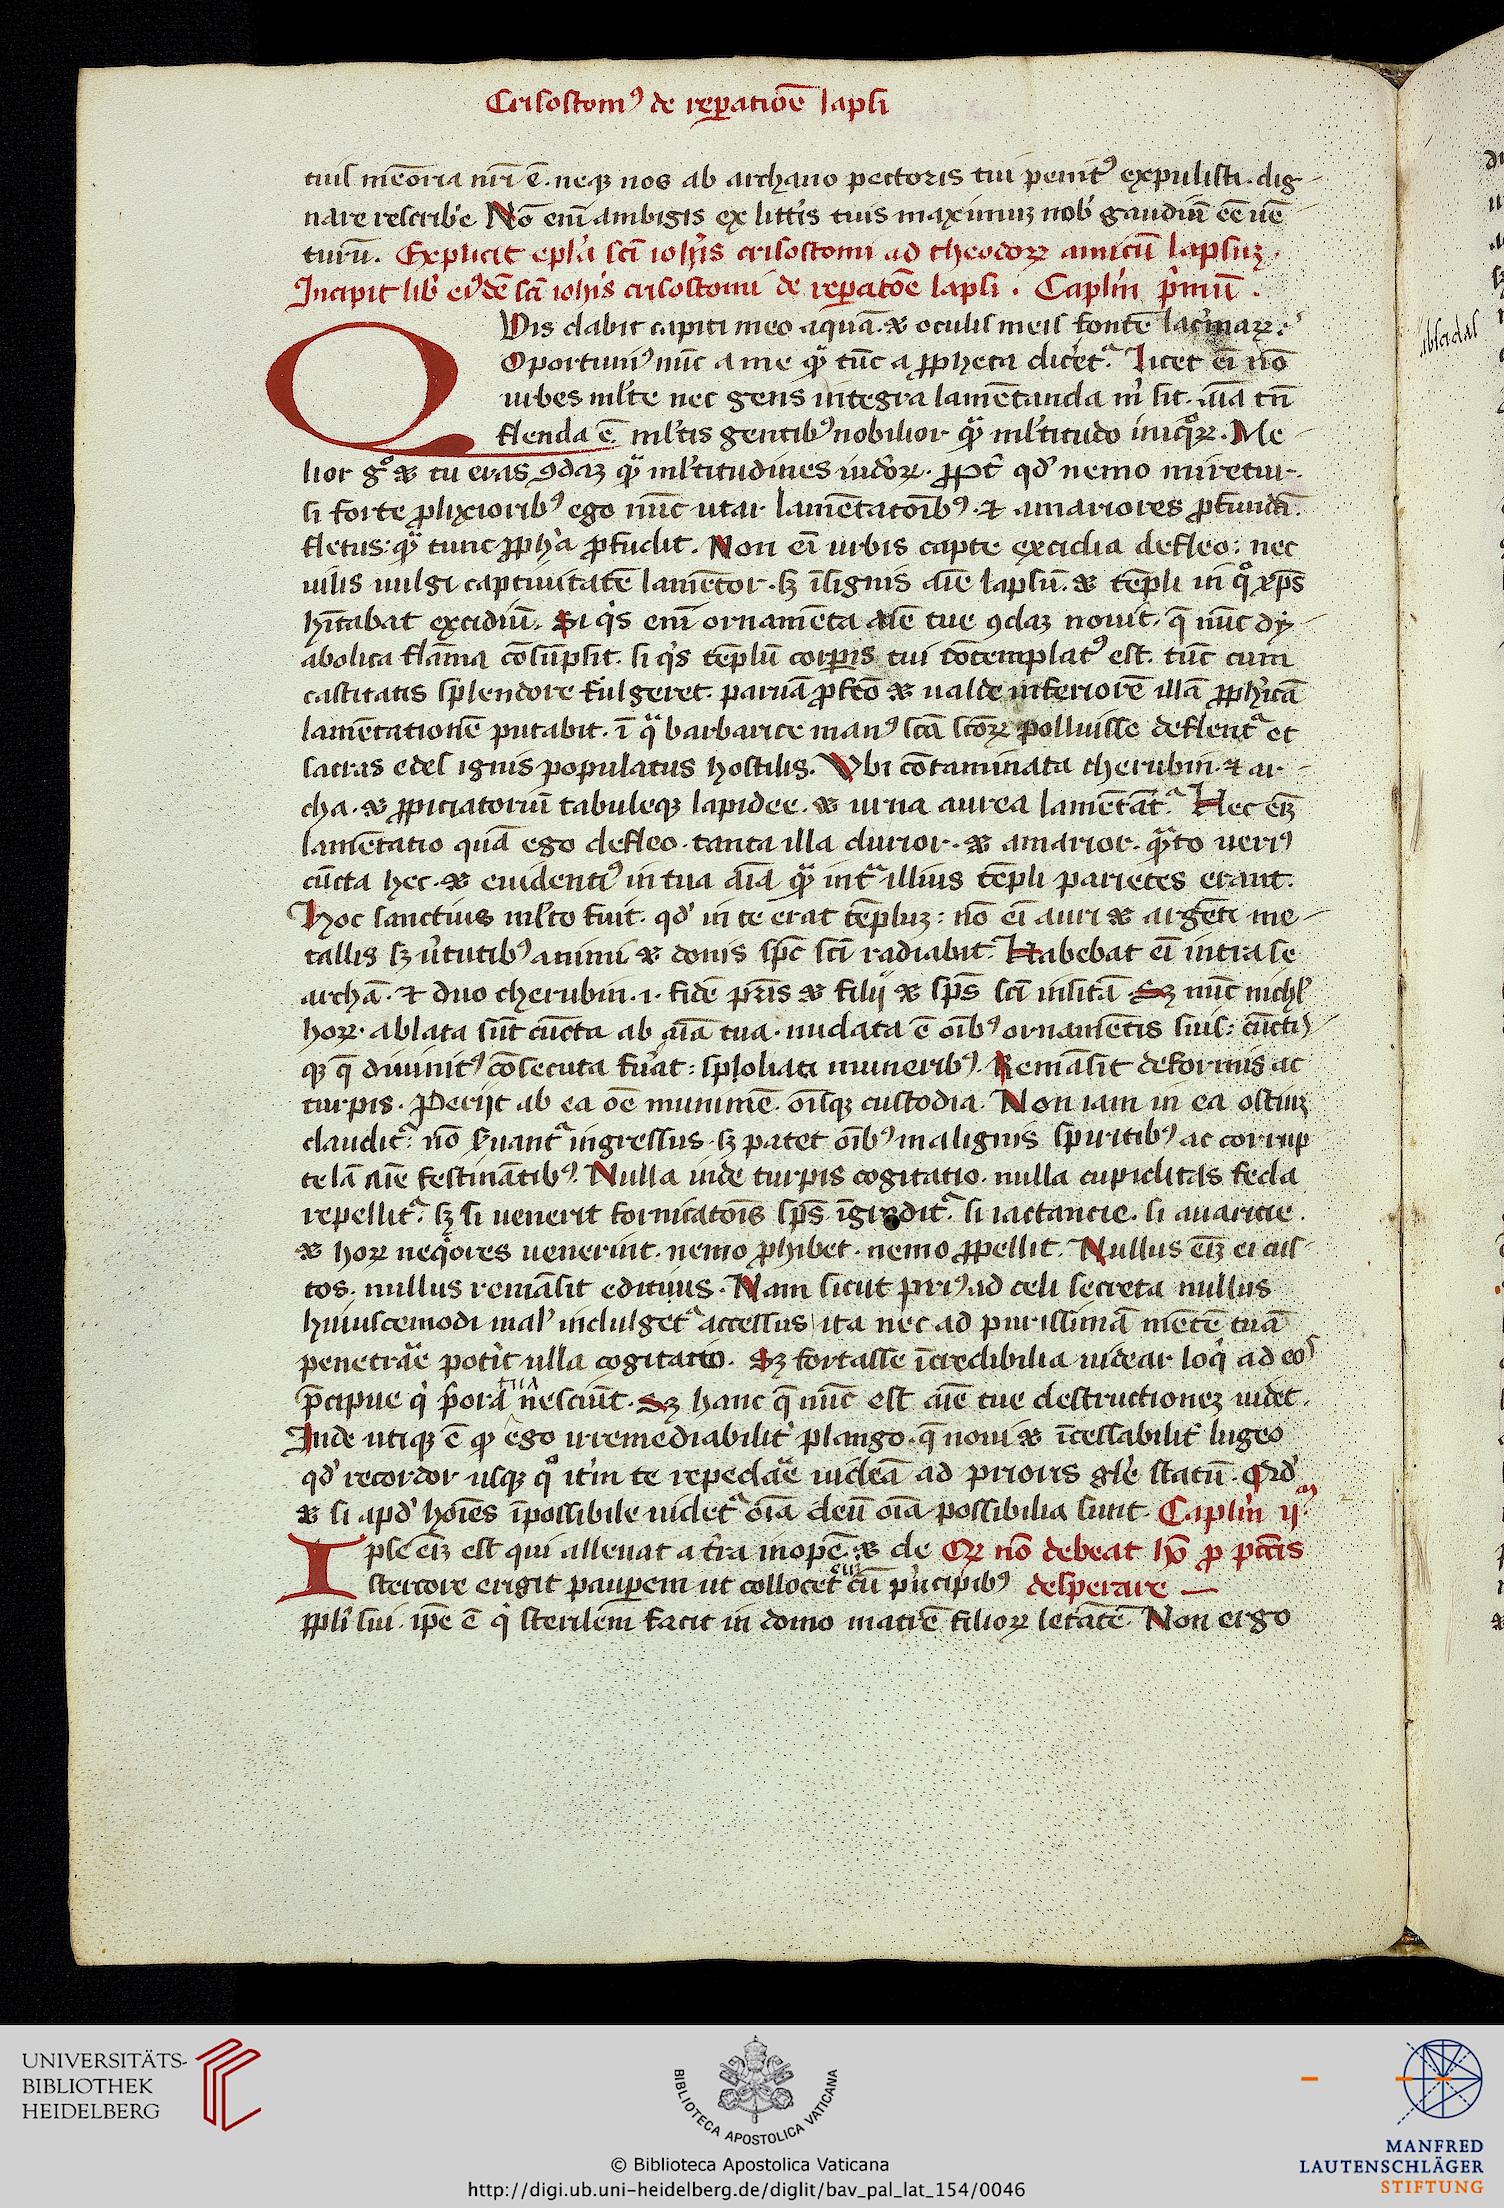 Crisostom⁹ de rep̲atiōe lapsi
tuis mēoria nr̄i ē. neqʒ nos ab archano pectoris tui penit⁹ expulisti. dig-
nare rescribe Nō eni͞ ambigis ex litt̓is tuis maximuʒ nob̓ gaudiū ēē uē-
turū. Explicit epl̓a sc̄i ioh̓is crisostomi ad theodoꝝ amicū lapsuʒ.
Incipit lib̓ ei⁹dē sc̄i ioh̓is crisostomi de rep̲atōe lapsi. Capl̓m p̓mū.
QVis dabit capiti meo aquā. ⁊ oculis meis fontē lac̓maꝝ:
Oportuni⁹ nūc a me qͣ̄ tūc a ꝓpheta dicet̓ᵃ. licet ei͞ nō
urbes ml̓te nec gens integra lamētanda m̓ sit. aīa tn̄
flenda ē ml̓tis gentib⁹ nobilior qͣ̄ ml̓titudo iniqͦꝝ. Me-
lior gͦ ⁊ tu eras ꝯdaʒ qͣ̄ ml̓titudines iudōꝝ. ꝓpt̓ qd̓ nemo miretur
si forte ꝓlixiorib⁹ ego nūc utar lamētatoīb⁹. ⁊ amariores ꝓfundā
fletus: qͣ̄ tunc ꝓph̓a ꝓfudit. Non ei͞ urbis capte excidia defleo: nec
uilis uulgi captiuitatē lamētor. sʒ īsignis aīe lapsū. ⁊ tēpli in qͦ xp̄s
hītabat excidiū. Si q̓s eni͞ ornamēta aīe tue ꝯdaʒ nouit. q̄ nūc dy-
abolica flāma cōsūpsit. si q̓s tēplū corp̲is tui cōtemplat⁹ est. tūc cum
castitatis splendore fulgeret. paruā ꝓfcō ⁊ ualde inferiorē illā ꝓph̓icā
lamētationē putabit. ī qͣ barbarice man⁹ scā scōꝝ polluisse deflent̓ᵃ et
sacras edes ignis populatus hostilis. Vbi cōtaminata cherubin. ⁊ ar-
cha. ⁊ ꝓpiciatoriū tabuleqʒ lapidee. ⁊ urna aurea lamētāt̓ᵃ. Hec eīʒ
lamētatio quā ego defleo. tanta illa durior. ⁊ amarior. qͣ̄to ueri⁹
cūcta hec. ⁊ euidenti⁹ in tua aīa qͣ̄ int̓ᵃ illius tēpli parietes erant.
Hoc sanctius ml̓to fuit. qd̓ in te erat tēpluʒ: nō ei͞ auri ⁊ argēti me-
tallis sʒ u̓tutib⁹ animi ⁊ donis sp̄c sc̄i radiabat. Habebat ei͞ intra se
archā. ⁊ duo cherubin. i. fidē pr̄is ⁊ filij ⁊ sp̄s sc̄i insitā Sʒ nūc nichl̓
hoꝝ. ablata sūt cūcta ab aīa tua. nudata ē oīb⁹ ornamētis suis: cūctis
qʒ q̄ diuinit⁹ cōsecuta fu̓at: sploliata munerib⁹. Remāsit deformis ac
turpis. Periit ab ea oē munimē. oīsqʒ custodia. Non iam in ea ostiuʒ
claudit̓ᵃ. nō s̓uant̓ᵃ ingressus. sʒ patet oīb⁹ malignis spiritib⁹ ac corrup
telā aīe festināntib⁹. Nulla inde turpis cogitatio. nulla cupiditas feda
repellit̓ᵃ. sʒ si uenerit fornicatoīs sp̄s īgredit̓ᵃ. si iactancie. si auaricie.
⁊ hoꝝ neqͦres uenerint. nemo ꝓhibet. nemo ꝓpellit. Nullus eīʒ ei cus-
tos. nullus remāsit edituus. Nam sicut pri⁹ ad celi secreta nullus
huiuscemodi mal̓ indulget̓ᵃ accessus ita nec ad purissimā mētē tuā
penetrāe pot̓it ulla cogitatio. Sʒ fortasse īcredibilia uidear loq̓ ad eos
p̄cipue q̓ p̓ora tua nesciūt. Sʒ hanc q̄ nūc est aīe tue destructioneʒ uidēt.
Inde utiqʒ ē qp ego irremediabilit̓ plango. q̄ noui ⁊ īcessabilit̓ lugeo
qd̓ recordor usqʒ qͦ it̓m te repedāe uideā ad prioris gl̓e statū. Qd̓
⁊ si apd̓ hoīes īpossibile uidet̓ᵃ oīa deū oīa possibilia sunt. Capl̓m ijᵐ
Ipse eīʒ est qui alleuat a t̓ra inopē. ⁊ de Qꝝ nō debeat hō ꝓ pcc̄is
stercore erigit paup̲em ut collocet eū cū p̓ncipib⁹ desperare —
ppl̓i sui. ip̄e ē q̓ sterilem facit in domo matrē filioꝝ letātē. Non ergo
UNIVERSITÄTS-
BIBLIOTHEK
HEIDELBERG
BIBLIOTECA APOSTOLICA VATICANA
© Biblioteca Apostolica Vaticana
http://digi.ub.uni-heidelberg.de/diglit/bav_pal_lat_154/0046
MANFRED
LAUTENSCHLÄGER
STIFTUNG